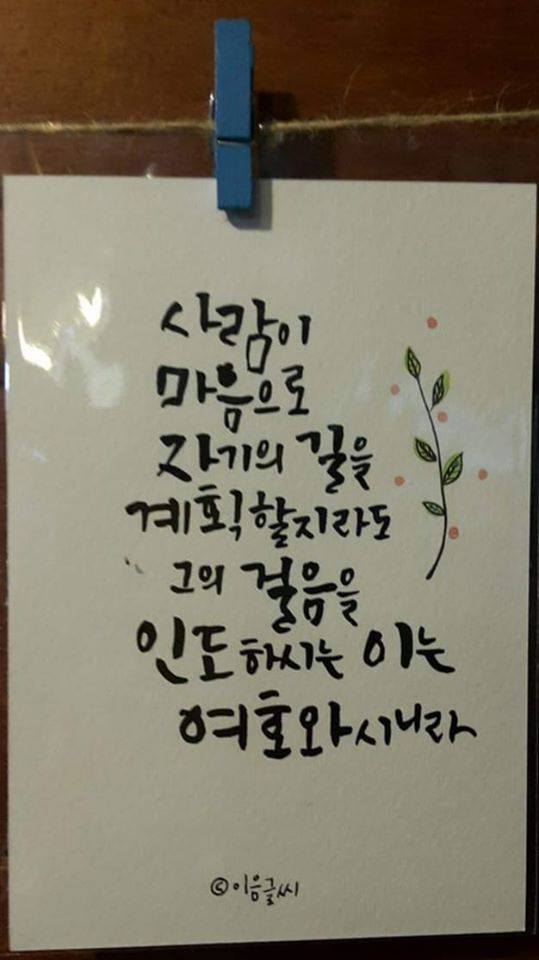 사람이
마음으로
자기의 길을
계획할지라도
그의 걸음을
인도하시는 이는
여호와시니라
©이음글씨